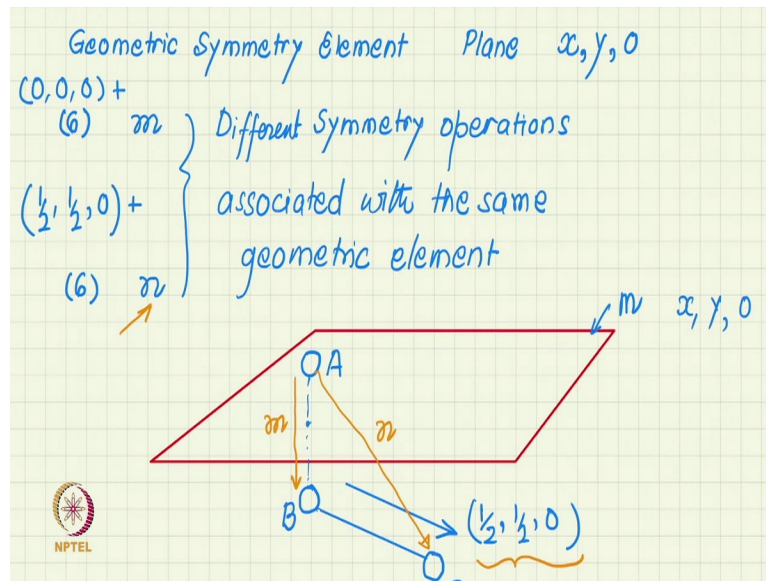 Geometric Symmetry Element Plane x, y, 0
(0,0,0)+
(6) m
Different Symmetry operations
(½, ½, 0)+
associated with the same
geometric element
(6) n
m x, y, 0
A
m
n
B
(½, ½, 0)
NPTEL